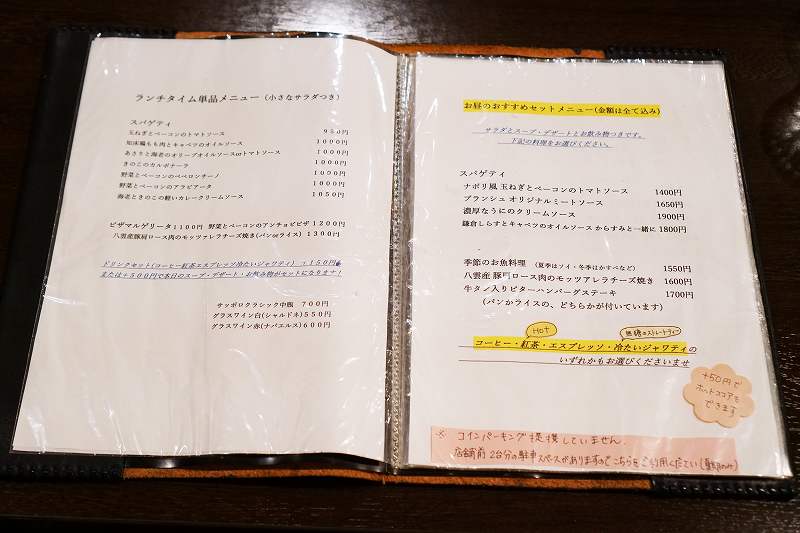 ランチタイム単品メニュー（小さなサラダつき）
スパゲティ
玉ねぎとベーコンのトマトソース 950円
知床鶏もも肉とキャベツのオイルソース 1000円
あさりと海老のオリーブオイルソースorトマトソース 1000円
きのこのカルボナーラ 1000円
野菜とベーコンのペペロンチーノ 1000円
野菜とベーコンのアラビアータ 1000円
海老ときのこの軽いカレークリームソース 1050円
ピザマルゲリータ1100円 野菜とベーコンのアンチョビピザ 1200円
八雲産豚肩ロース肉のモッツァレラチーズ焼き(パンorライス) 1300円
ドリンクセット(コーヒー紅茶エスプレッソ冷たいジャワティ) +150円
または+500円で本日のスープ・デザート・お飲み物がセットになります!
サッポロクラシック中瓶 700円
グラスワイン白(シャルドネ) 550円
グラスワイン赤(ナパエルス) 600円
お昼のおすすめセットメニュー(金額は全て込み)
サラダとスープ・デザートとお飲み物つきです。
下記の料理をお選びください。
スパゲティ
ナポリ風 玉ねぎとベーコンのトマトソース 1400円
ブランシュ オリジナルミートソース 1650円
濃厚なうにのクリームソース 1900円
鎌倉しらすとキャベツのオイルソース からすみと一緒に 1800円
季節のお魚料理 (夏季はソイ・冬季はかすべなど) 1550円
八雲産 豚肩ロース肉のモッツアレラチーズ焼き 1600円
牛タン入りビターハンバーグステーキ 1700円
(パンかライスの、どちらかが付いています)
Hot 無糖のストレートティー
コーヒー・紅茶・エスプレッソ・冷たいジャワティの
いずれかもお選びくださいませ
+50円で
ホットココアも
できます
※ コインパーキング提携していません.
店舗前 2台分の駐車スペースがありますのでこちらをご利用ください